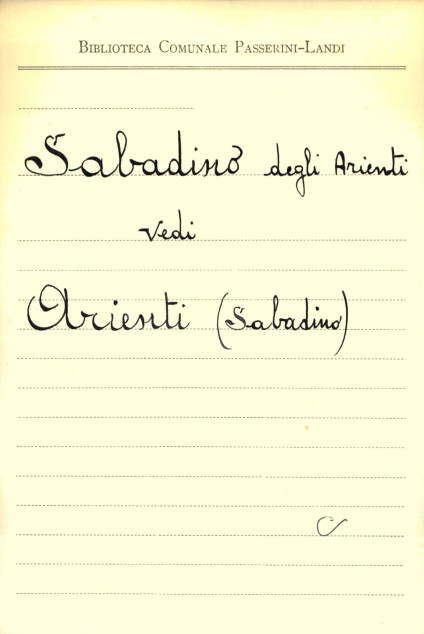 Biblioteca Comunale Passerini-Landi
Sabadino degli Arienti
vedi
Arienti (Sabadino)